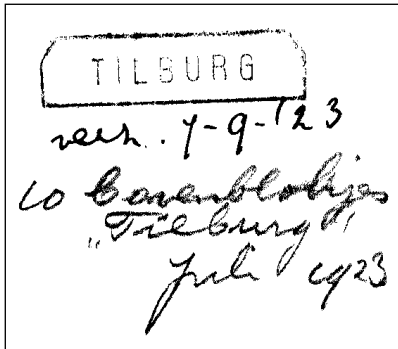 TILBURG
verz. 7-9-'23
10 bovenblokjes
"Tilburg"
Juli 1923